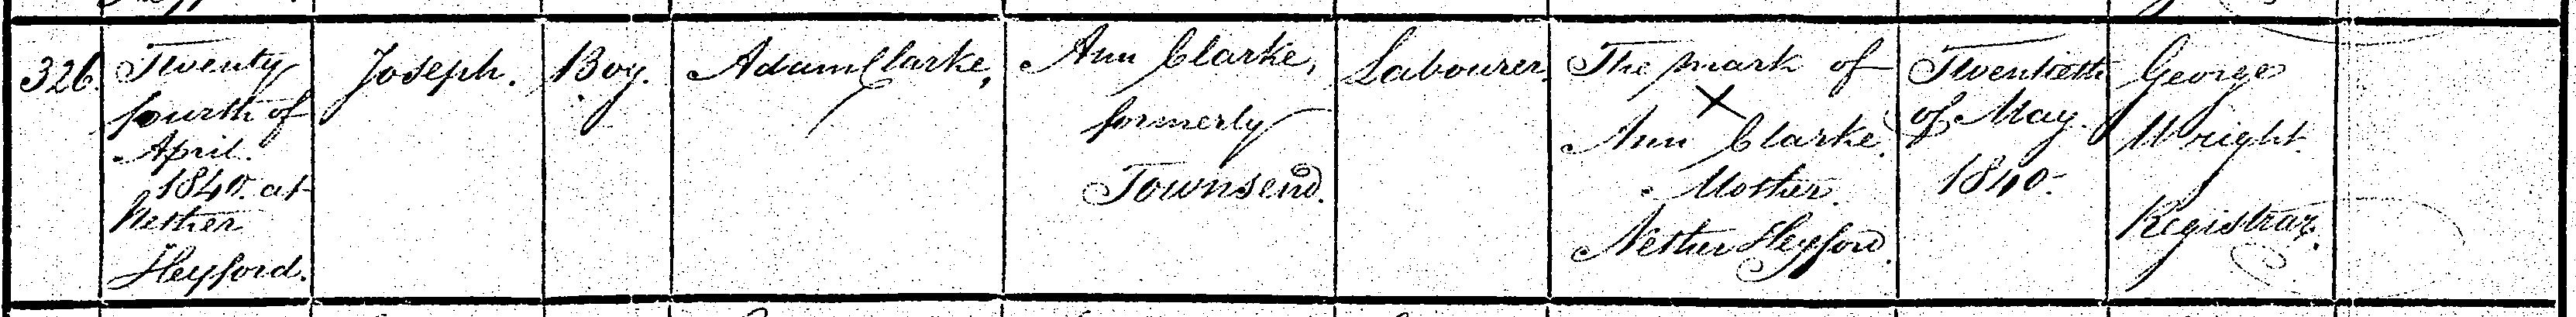 326.
Twenty
fourth of
April.
1840. at
Nether
Heyford.
Joseph.
Boy.
Adam Clarke,
Ann Clarke,
formerly
Townsend.
Labourer.
The mark of
X
Ann Clarke.
Mother.
Nether Heyford.
Twentieth
of May.
1840.
George
Wright.
Registrar.